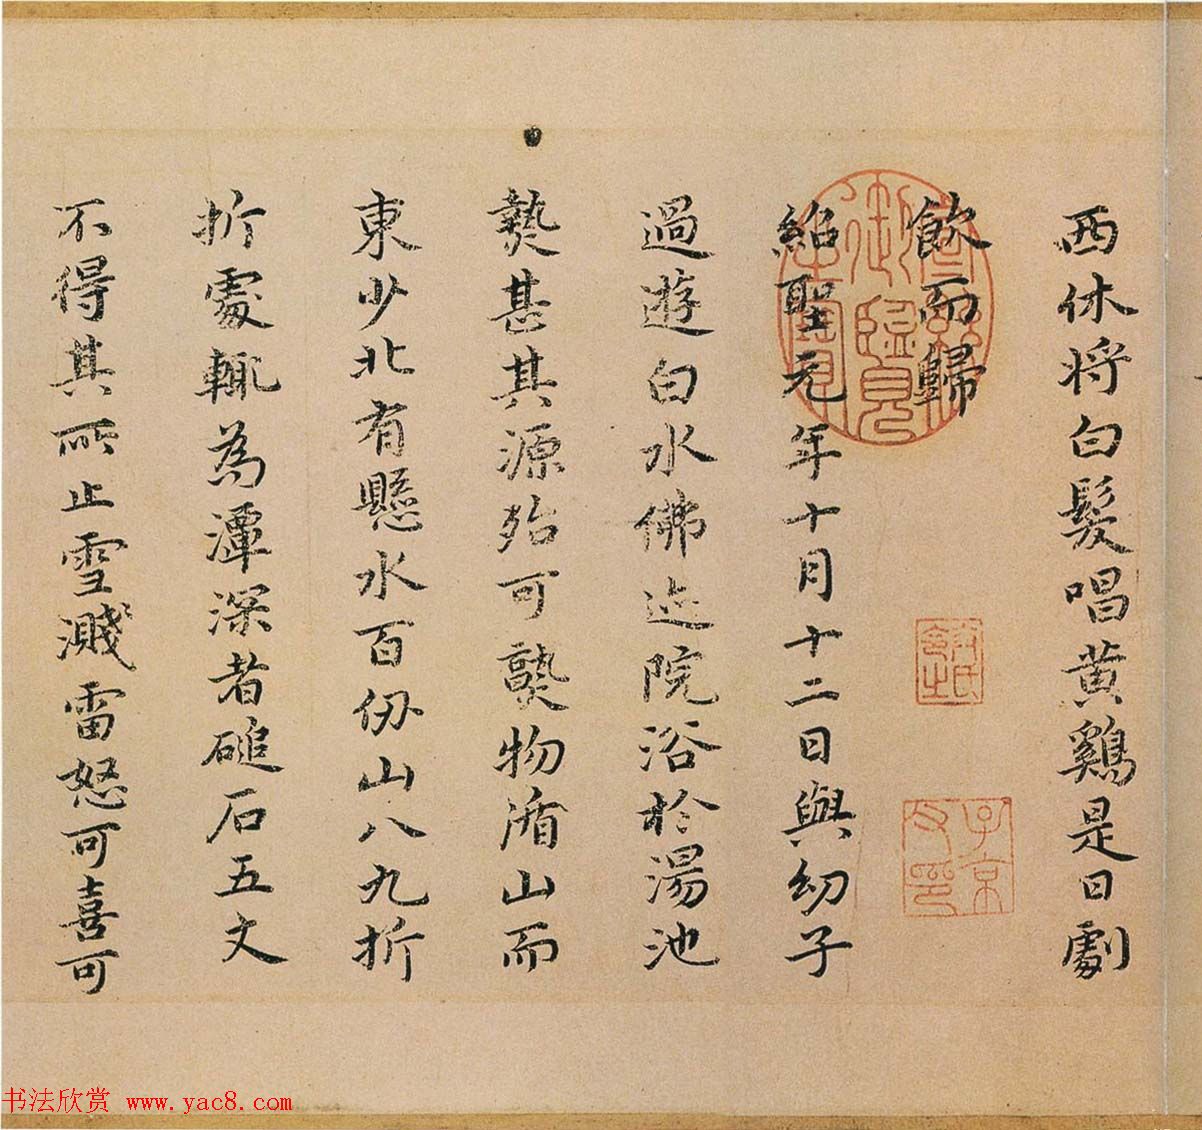 西休将白髮唱黄鷄是日劇
飲而歸
紹聖元年十月十二日與幼子
過遊白水佛迹院浴於湯池
熱甚其源殆可熟物循山而
東少北有懸水百仞山八九折
折處輒為潭深者磓石五丈
不得其所止雪濺雷怒可喜可
書法欣赏 www.yac8.com